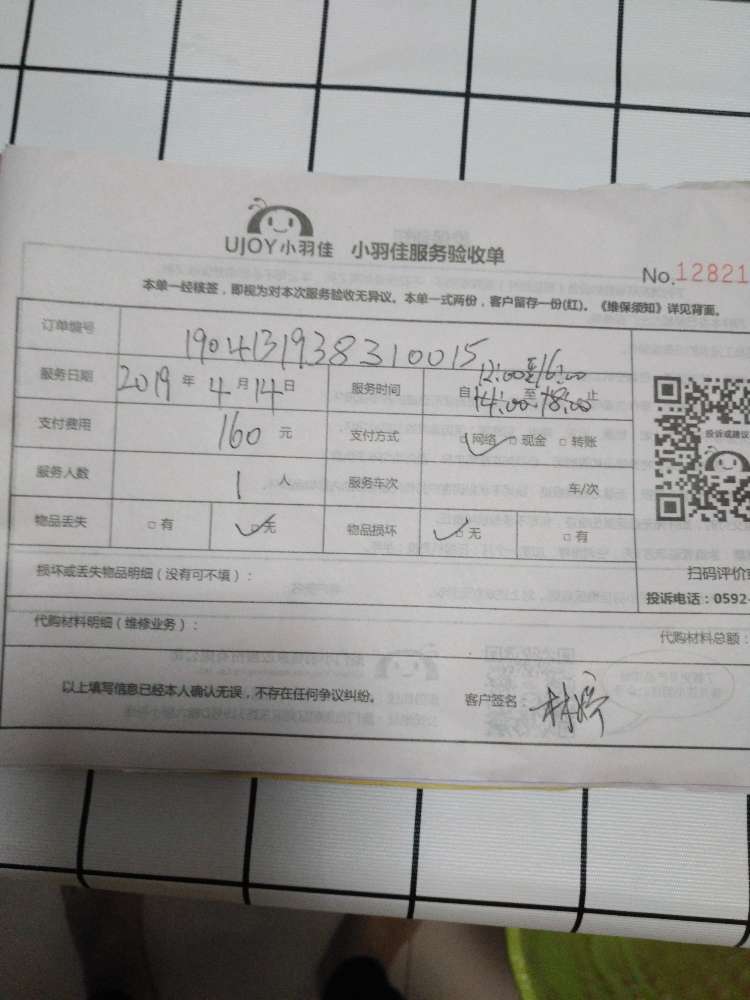 UJOY小羽佳 小羽佳服务验收单
No.12821
本单一经核签，即视为对本次服务验收无异议。本单一式两份，客户留存一份(红)。《维保须知》详见背面。
订单编号 1904131938310015
服务日期 2019 年 4 月 14 日 服务时间 自 14:00 至 18:00 止
12:00至16:00
支付费用 160 元 支付方式 ☑网络 □现金 □转账
服务人数 1 人 服务车次 车/次
物品丢失 □有 ☑无 物品损坏 ☑无 □有
投诉或建议
损坏或丢失物品明细（没有可不填）：
扫码评价
投诉电话：0592-
代购材料明细（维修业务）： 代购材料总额：
以上填写信息已经本人确认无误，不存在任何争议纠纷。 客户签名：林